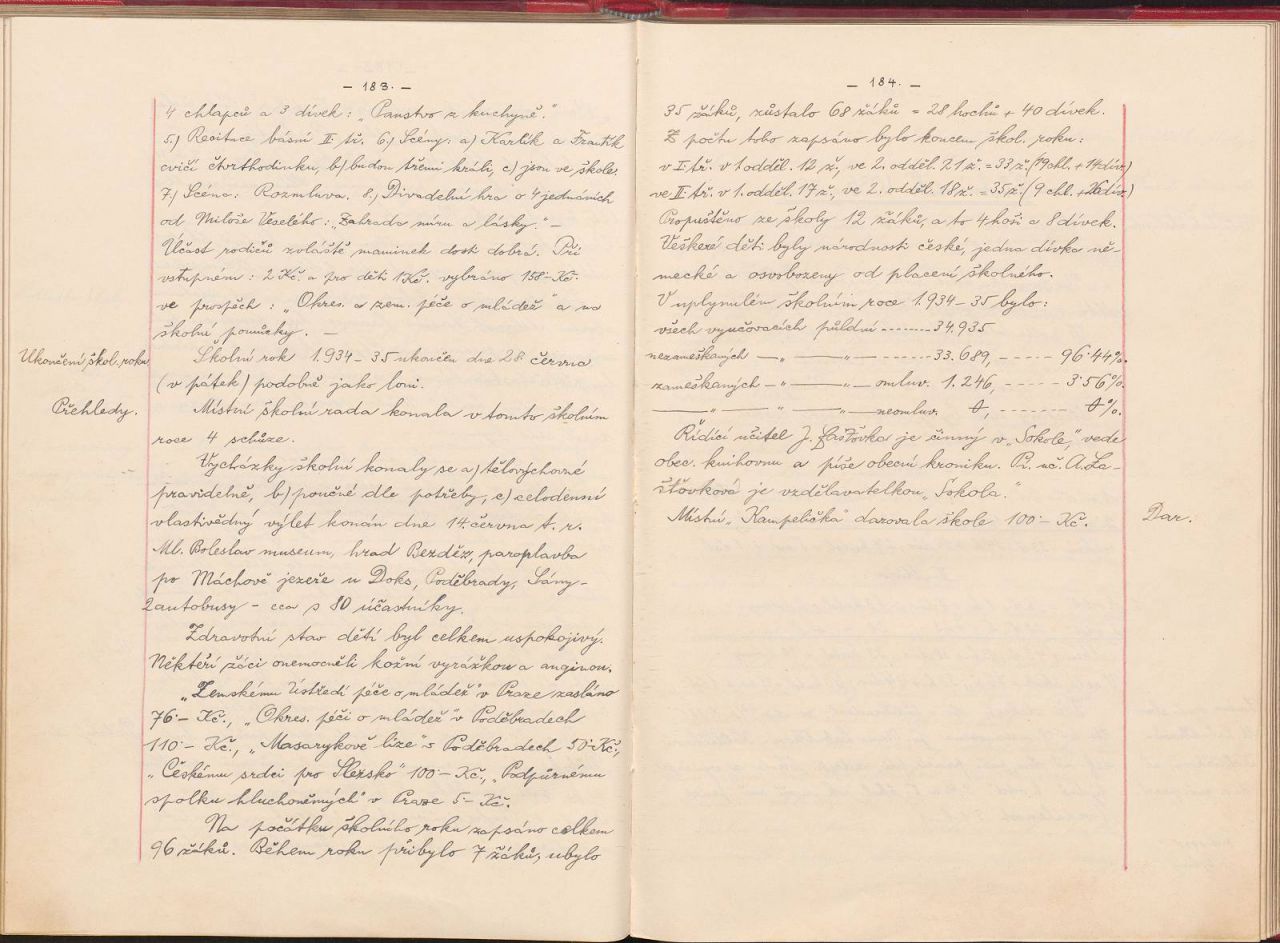 - 183. -
4 chlapců a 3 dívek: „Panstvo z kuchyně."
5.) Recitace básní II. tř. 6.) Scény: a) Karlík a Frantík
cvičí čtvrthodinku, b) budou třemi králi, c) jsou ve škole.
7.) Scéna: Rozmluva. 8.) Divadelní hra o 4 jednáních
od Miloše Veselého: „Zahrada míru a lásky." -
Účast rodičů zvláště maminek dosti dobrá. Při
vstupném: 2 Kč a pro děti 1 Kč. vybráno 158·- Kč
ve prospěch: „Okres. a zem. péče o mládež" a na
školní pomůcky. -
Ukončení škol. roku
Školní rok 1.934 - 35 ukončen dne 28. června
(v pátek) podobně jako loni.
Přehledy.
Místní školní rada konala v tomto školním
roce 4 schůze.
Vycházky školní konaly se a) tělovýchovné
pravidelně, b) poučné dle potřeby, c) celodenní
vlastivědný výlet konán dne 14. června t. r.
Ml. Boleslav museum, hrad Bezděz, paroplavba
po Máchově jezeře u Doks, Poděbrady, Sány -
2 autobusy - cca s 80 účastníky.
Zdravotní stav dětí byl celkem uspokojivý.
Někteří žáci onemocněli kožní vyrážkou a anginou.
„Zemskému Ústředí péče o mládež" v Praze zasláno
76·- Kč., „Okres. péči o mládež" v Poděbradech
110·- Kč., „Masarykově lize" v Poděbradech 50·- Kč.,
„Českému srdci pro Slezsko" 100·- Kč., „Podpůrnému
spolku hluchoněmých" v Praze 5·- Kč.
Na počátku školního roku zapsáno celkem
96 žáků. Během roku přibylo 7 žáků, ubylo
- 184. -
35 žáků, zůstalo 68 žáků = 28 hochů + 40 dívek.
Z počtu toho zapsáno bylo koncem škol. roku:
v I. tř. v 1. odděl. 12 ž., ve 2. odděl. 21 ž. = 33 ž. (19 chl. + 14 dív.)
ve II. tř. v 1. odděl. 17 ž., ve 2. odděl. 18 ž. = 35 ž. (9 chl. + 26 dív.)
Propuštěno ze školy 12 žáků, a to 4 hoši a 8 dívek.
Veškeré děti byly národnosti české, jedna dívka ně-
mecké a osvobozeny od placení školného.
V uplynulém školním roce 1.934 - 35 bylo:
všech vyučovacích půldní -------- 34.935
nezameškaných -„- -„- -------- 33.689, ----- 96·44%.
zameškaných -„- -„- omluv. 1.246, ----- 3·56%.
-„- -„- -„- neomluv. 0, ------- 0%.
Řídící učitel J. Lašťovka je činný v „Sokole", vede
obec. knihovnu a píše obecní kroniku. Pr. uč. A. La-
šťovková je vzdělavatelkou „Sokola."
Místní „Kampelička" darovala škole 100·- Kč.
Dar.